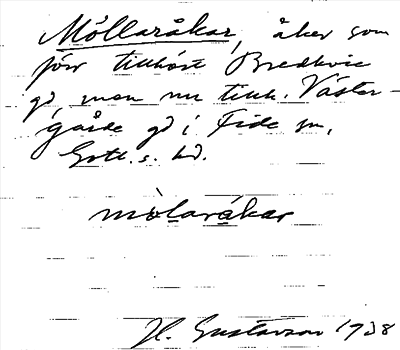 Möllaråkar, åker som
förr tillhört Bredkvie
gd, men nu tillh. Väster-
gårde gd i Fide sn,
Gotl. s. hd.
mòlaråkar
H. Gustavson 1938